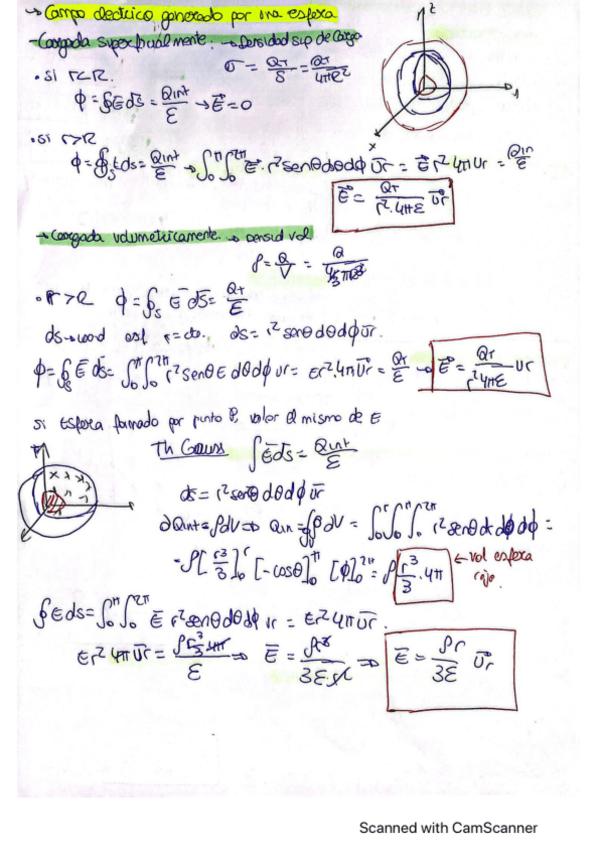 → Campo electrico generado por una esfera
- Cargada superficialmente. → Densidad sup de carga
σ = QT/S = QT/4πR²
• si r<R.
ϕ = ∮E ds = Qint/ε → E = 0
• si r>R
ϕ = ∮s E ds = Qint/ε → ∫₀^π ∫₀^2π E · r² senθ dθ dϕ ur = E r² 4π ur = Qin/ε
E = QT/r²·4πε ur
z
y
x
→ Cargada volumetricamente. → Densid vol
ρ = Q/V = Q/(4/3 πR³)
• r>R ϕ = ∮s E ds = QT/ε
ds → coord esf r = cte. ds = r² senθ dθ dϕ ur.
ϕ = ∮s E ds = ∫₀^π ∫₀^2π r² senθ E dθ dϕ ur = E r² · 4π ur = QT/ε → E = QT/r²4πε ur
si Esfera formado por punto P, valor el mismo de E
Th Gauss ∫E ds = Qint/ε
ds = r² senθ dθ dϕ ur
dQint = ρdV ⇒ Qin = ∭ρ dV = ∫₀^r ∫₀^π ∫₀^2π r² senθ dr dθ dϕ =
= ρ[r³/3]₀^r [-cosθ]₀^π [ϕ]₀^2π = ρ r³/3 · 4π ← vol esfera roja.
∮E ds = ∫₀^π ∫₀^2π E r² senθ dθ dϕ ur = E r² 4π ur.
E r² 4π ur = ρ r³/3 4π / ε ⇒ E = ρr³/3ε r² ⇒ E = ρr/3ε ur
Scanned with CamScanner